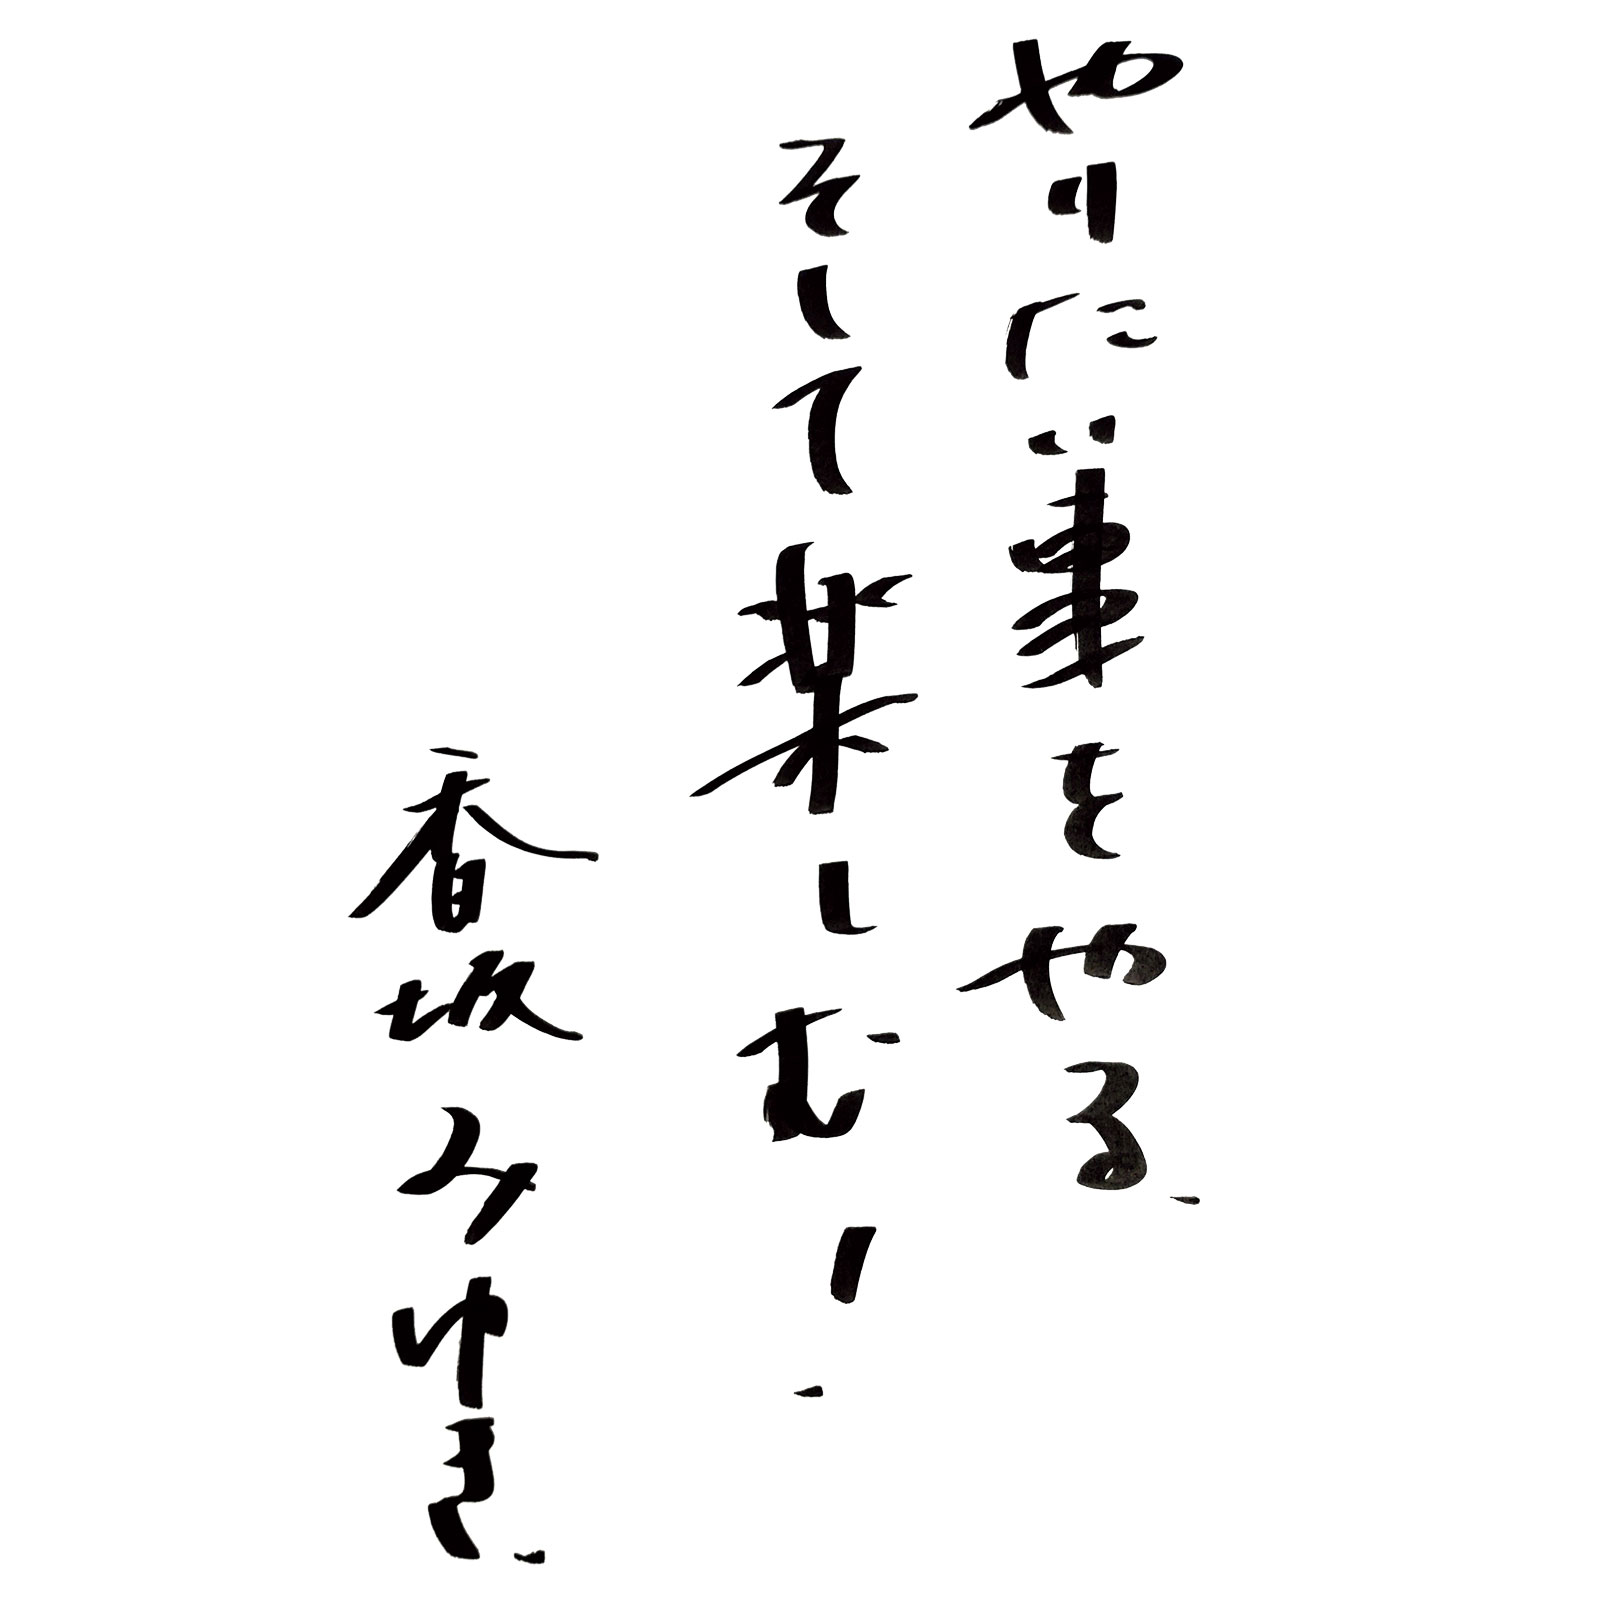 やりたい事をやる、
そして楽しむ!
香坂みゆき、